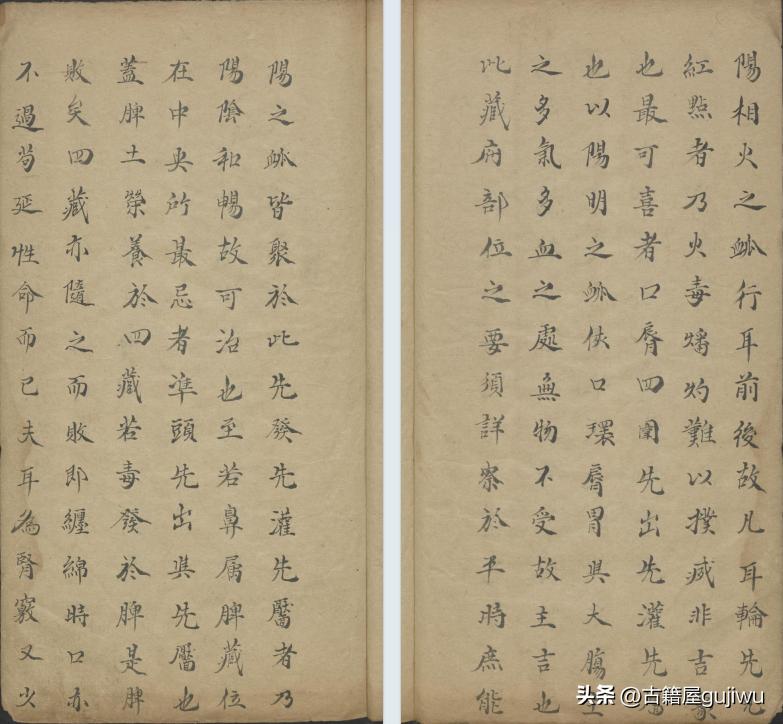 陽之脉皆聚於此先發先灌先靨者乃
陽陰和暢故可治也至若鼻属脾藏位
在中央所最忌者準頭先出與先靨也
蓋脾土榮養於四藏若毒發於脾是脾
敗矣四藏亦隨之而敗即纏綿時日亦
不過苟延性命而已夫耳為腎竅又少
陽相火之脉行耳前後故凡耳輪先
紅點者乃火毒燔灼難以撲滅非吉
也最可喜者口唇四圍先出先灌先
也以陽明之脉俠口環唇胃與大腸主
之多氣多血之處無物不受故主吉也
此藏府部位之要須詳察於平時庶能
头条 @古籍屋gujiwu